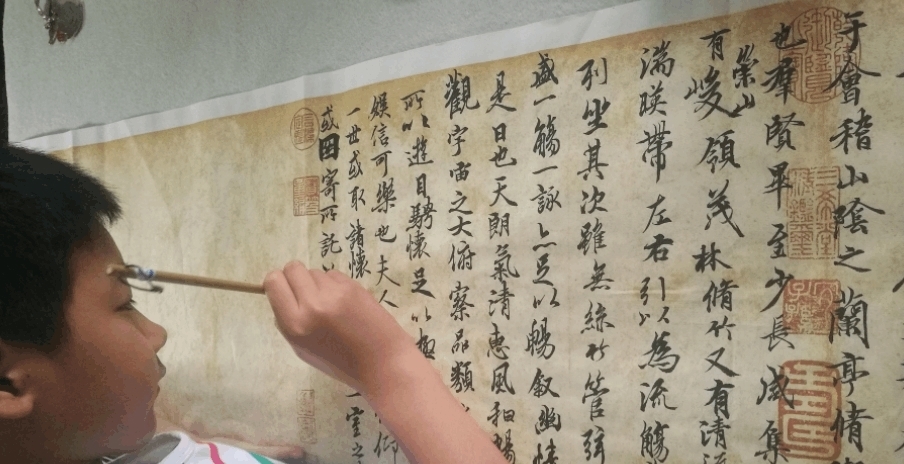 于會稽山陰之蘭亭脩
也羣賢畢至少長咸集
有崇山峻領茂林脩竹又有清流
湍暎帶左右引以為流觴
列坐其次雖無絲竹管弦
盛一觴一詠亦足以暢敘幽情
是日也天朗氣清惠風和暢
觀宇宙之大俯察品類
所以遊目騁懷足以極
娛信可樂也夫人
一世或取諸懷 一室之
或因寄所託